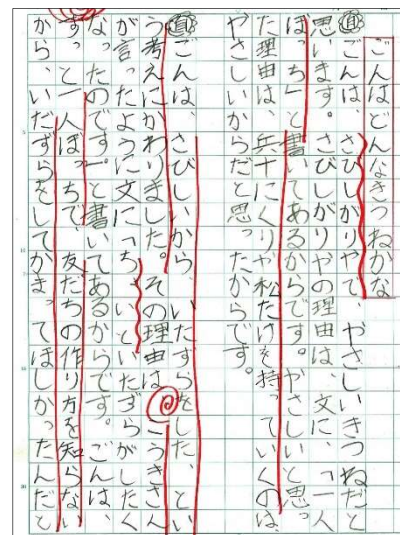 ごんはどんなきつねかな
ごんは、さびしがりやで、やさしいきつねだと
思います。さびしがりやの理由は、文に、「一人
ぼっち」と書いてあるからです。やさしいと思っ
た理由は、兵十にくりや松たけを持っていくのは、
やさしいからだと思ったからです。
ごんは、さびしいから、いたずらをした、とい
う考えにかわりました。その理由は こうきさん
が言ったように文に「ちょいといたずらがしたく
なったのです。」と書いてあるからです。ごんは、
ずっと一人ぼっちで、友だちの作り方を知らない
から、いたずらをしてかまってほしかったんだと